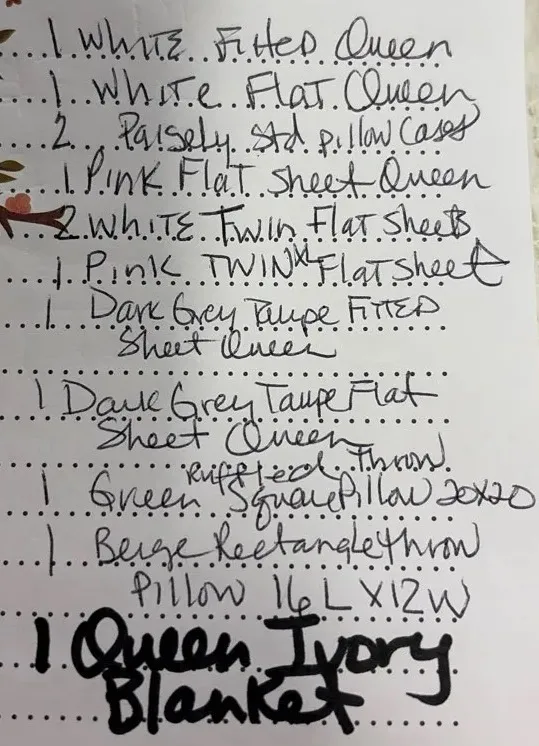 1 White Fitted Queen
1 White Flat Queen
2 Paisely Std pillow Cases
1 Pink Flat sheet Queen
2 White Twin Flat Sheets
1 Pink TWIN XL Flat sheet
1 Dark Grey Taupe FITTED
Sheet Queen
1 Dark Grey Taupe Flat
Sheet Queen
Ruffled Throw
1 Green Square Pillow 20X20
1 Beige Rectangle throw
Pillow 16L X12W
1 Queen Ivory
Blanket